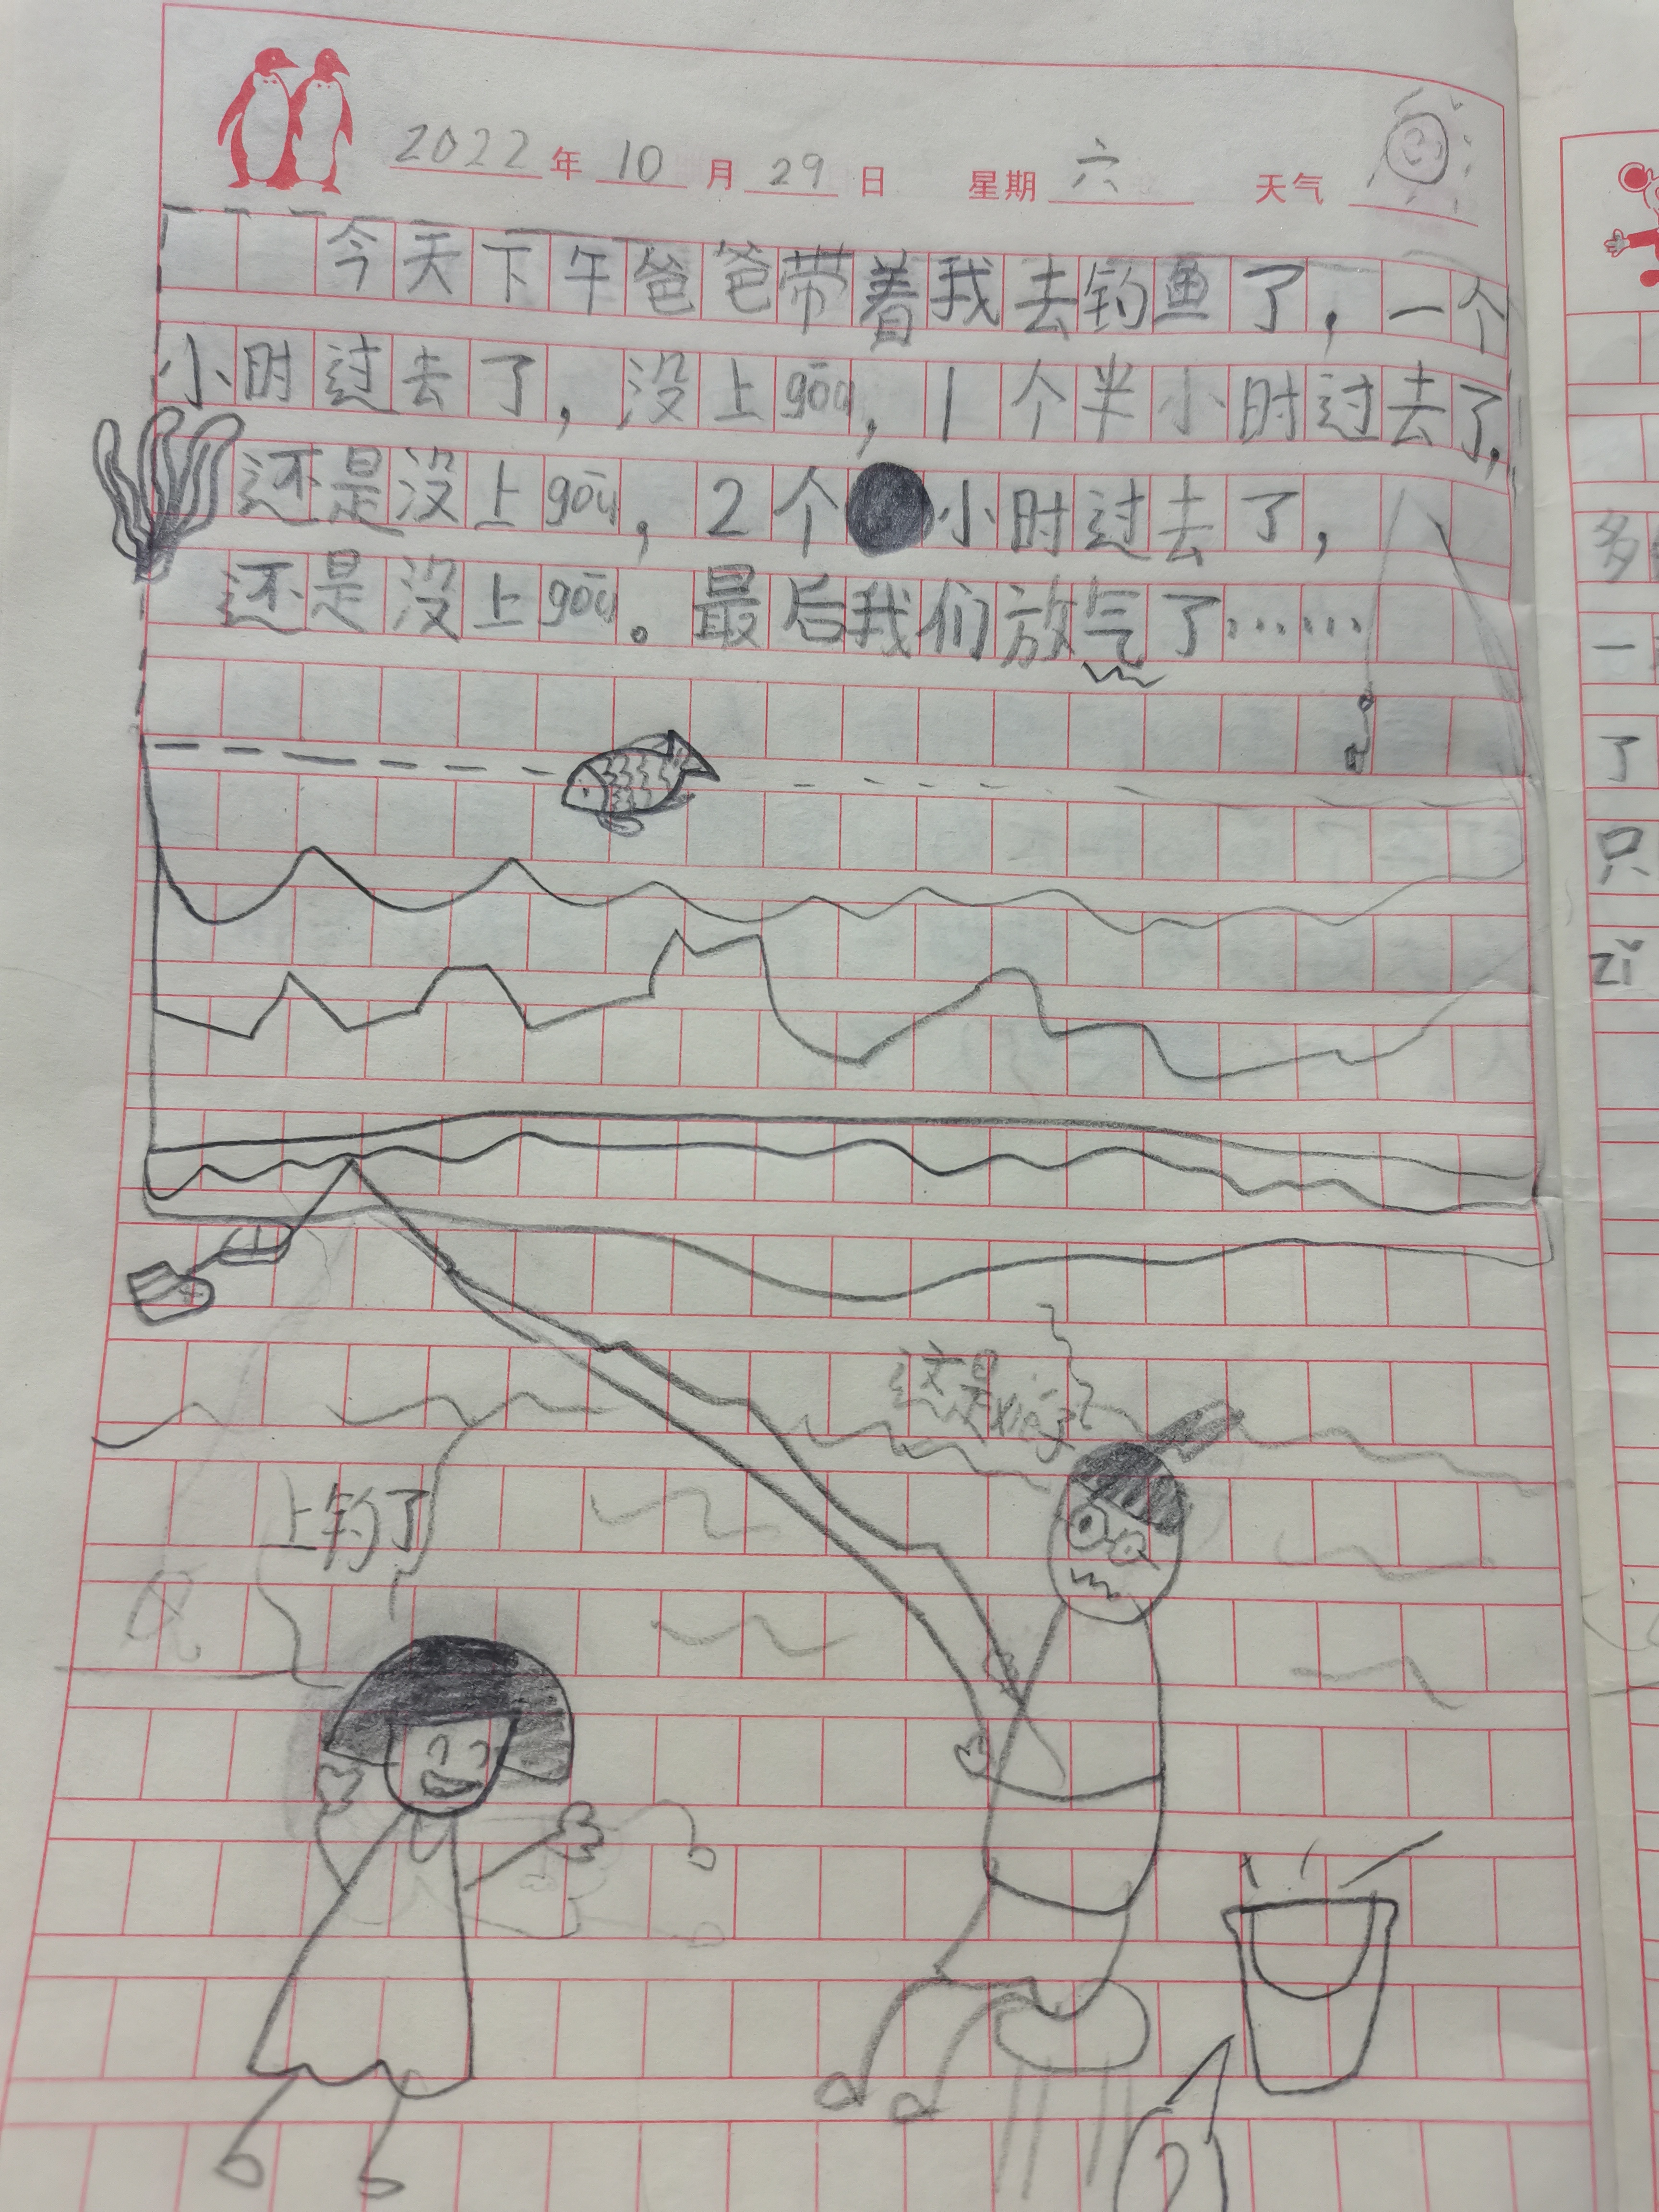 2022年10月29日 星期六 天气
今天下午爸爸带着我去钓鱼了，一个
小时过去了，没上gōu，1个半小时过去了，
还是没上gōu，2个小时过去了，
还是没上gōu。最后我们放气了……
这是xié子
上钓了
?
多
一
了
只
zǐ